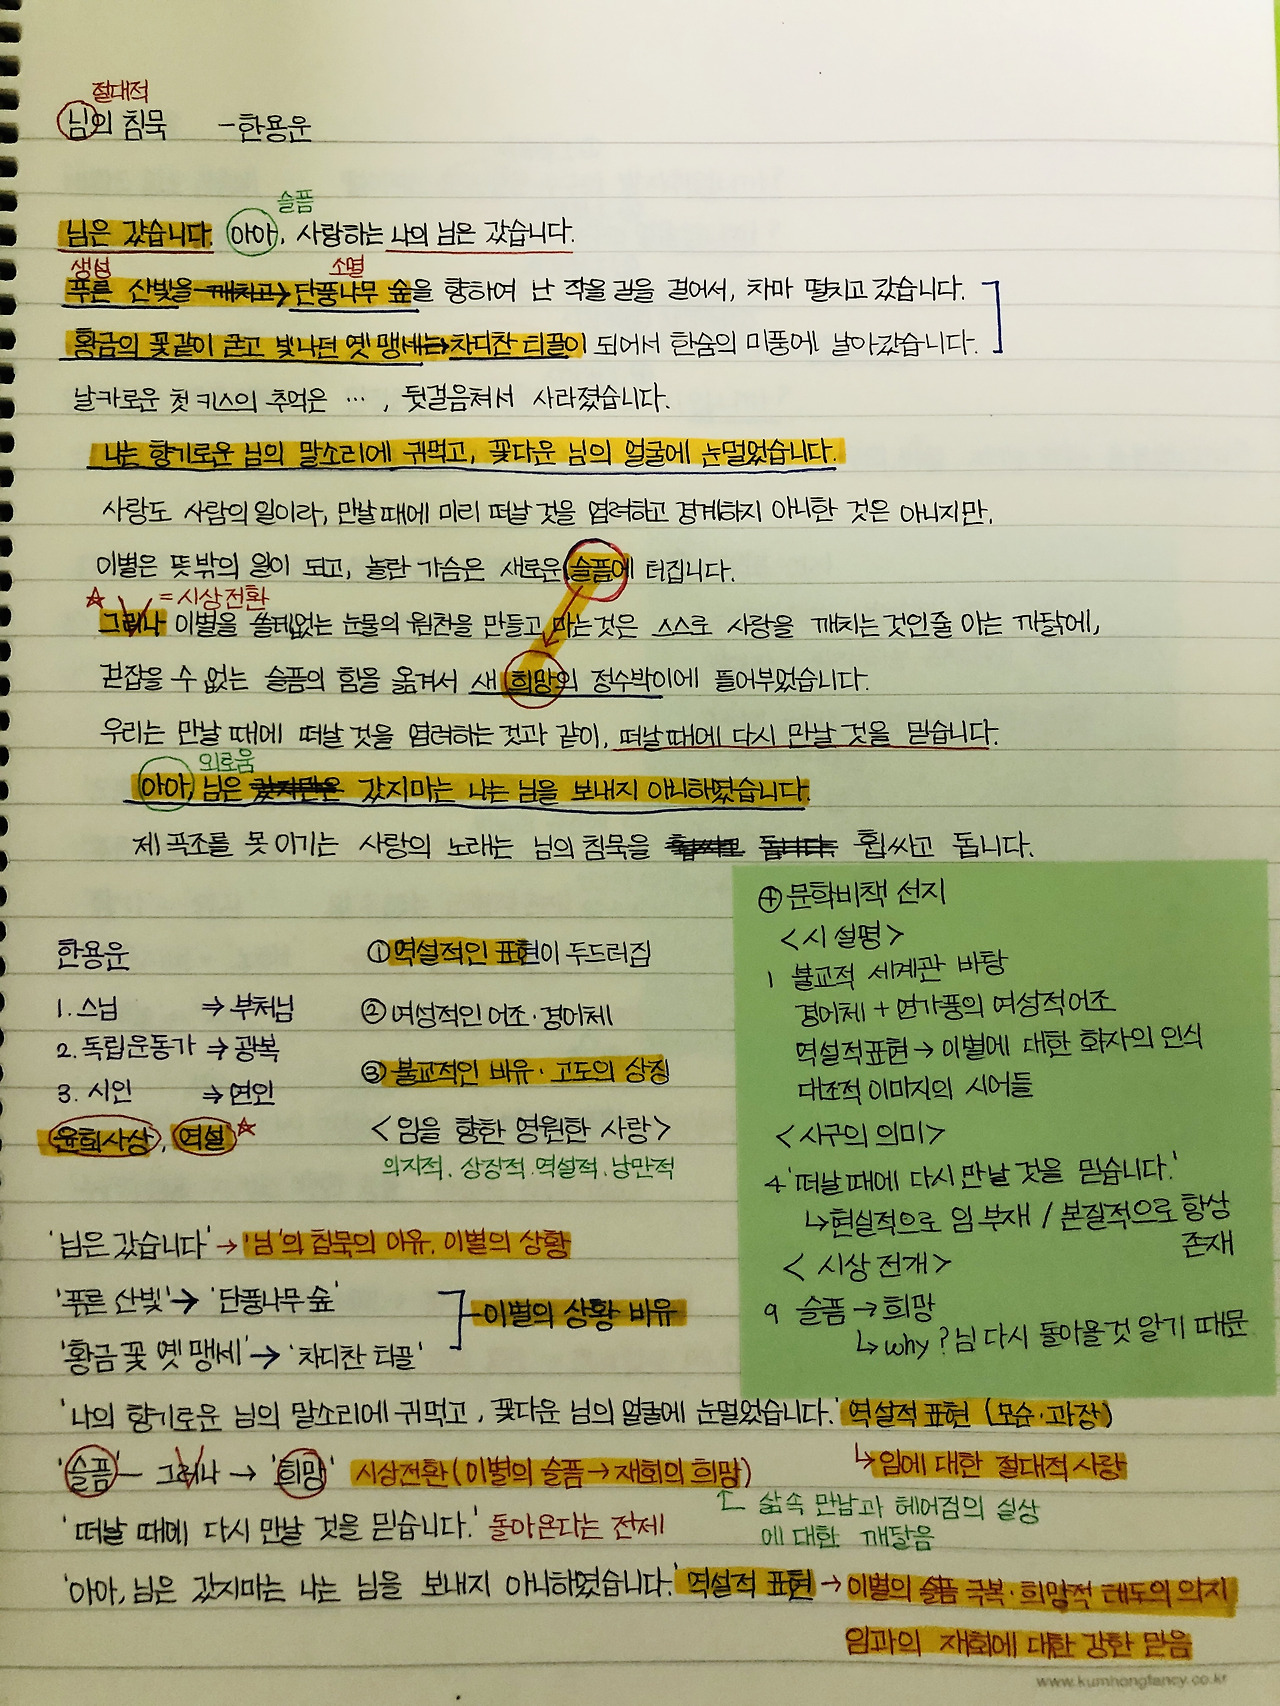 절대적
님의 침묵 -한용운
슬픔
님은 갔습니다. 아아, 사랑하는 나의 님은 갔습니다.
생성 소멸
푸른 산빛을 깨치고→ 단풍나무 숲을 향하여 난 작을 길을 걸어서, 차마 떨치고 갔습니다.
황금의 꽃같이 굳고 빛나던 옛 맹세는→차디찬 티끌이 되어서 한숨의 미풍에 날아갔습니다.
날카로운 첫 키스의 추억은 …, 뒷걸음쳐서 사라졌습니다.
나는 향기로운 님의 말소리에 귀먹고, 꽃다운 님의 얼굴에 눈멀었습니다.
사랑도 사람의 일이라, 만날 때에 미리 떠날 것을 염려하고 경계하지 아니한 것은 아니지만,
이별은 뜻밖의 일이 되고, 놀란 가슴은 새로운 슬픔에 터집니다.
☆ = 시상전환
그러나 이별을 쓸데없는 눈물의 원천을 만들고 마는것은 스스로 사랑을 깨치는 것인줄 아는 까닭에,
걷잡을 수 없는 슬픔의 힘을 옮겨서 새 희망의 정수박이에 들어부었습니다.
우리는 만날 때에 떠날 것을 염려하는 것과 같이, 떠날 때에 다시 만날 것을 믿습니다.
외로움
아아, 님은 갔지만은 갔지마는 나는 님을 보내지 아니하였습니다.
제 곡조를 못 이기는 사랑의 노래는 님의 침묵을 휩싸고 돕니다. 휩싸고 돕니다.
한용운
1. 스님 ⇒ 부처님
2. 독립운동가 ⇒ 광복
3. 시인 ⇒ 연인
윤회사상, 역설 ☆
① 역설적인 표현이 두드러짐
② 여성적인 어조·경어체
③ 불교적인 비유·고도의 상징
<임을 향한 영원한 사랑>
의지적. 상징적. 역설적. 낭만적
⊕ 문학비책 선지
<시 설명>
1 불교적 세계관 바탕
경어체 + 연가풍의 여성적어조
역설적표현 → 이별에 대한 화자의 인식
대조적 이미지의 시어들
<시구의 의미>
4 '떠날 때에 다시 만날 것을 믿습니다.'
↳현실적으로 임 부재 / 본질적으로 항상
존재
<시상 전개>
9 슬픔 → 희망
↳ why? 님 다시 돌아올것 알기 때문
'님은 갔습니다' → '님'의 침묵의 이유. 이별의 상황
'푸른 산빛' → '단풍나무 숲'
이별의 상황 비유
'황금 꽃 옛 맹세' → '차디찬 티끌'
'나의 향기로운 님의 말소리에 귀먹고, 꽃다운 님의 얼굴에 눈멀었습니다.' 역설적 표현 (모순·과장)
↳임에 대한 절대적 사랑
'슬픔' — 그러나 → '희망' 시상전환 (이별의 슬픔 → 재회의 희망)
삶속 만남과 헤어짐의 실상
에 대한 깨달음
'떠날 때에 다시 만날 것을 믿습니다.' 돌아온다는 전제
'아아, 님은 갔지마는 나는 님을 보내지 아니하였습니다.' 역설적 표현 → 이별의 슬픔 극복·희망적 태도의 의지
임과의 재회에 대한 강한 믿음
www.kumhongfancy.co.kr